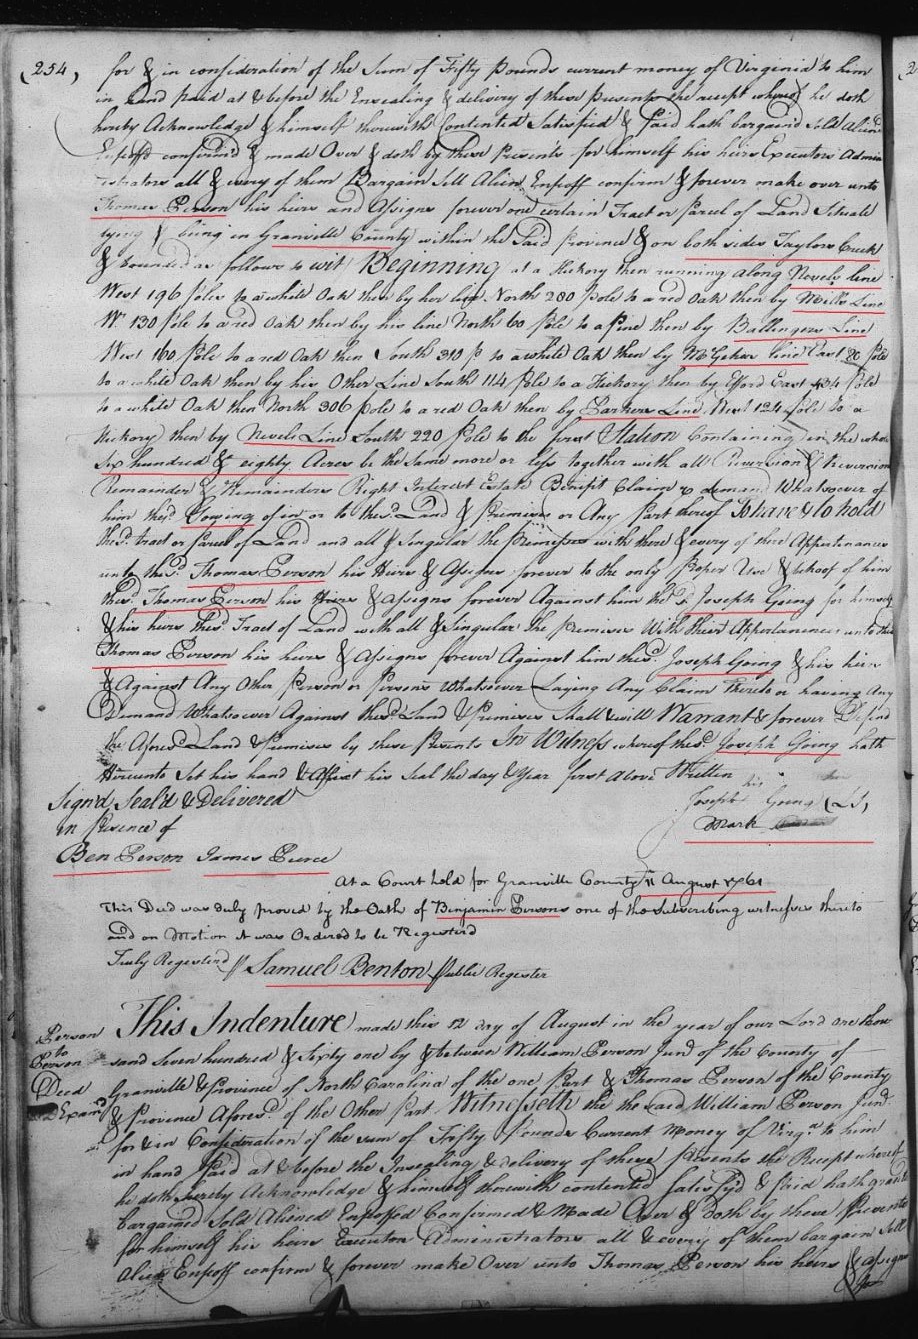 (254)
for & in consideration of the Sum of Fifty pounds current money of Virginia to him
in hand paid at & before the Ensealing & delivery of these presents the receipt whereof he doth
hereby Acknowledge & himself therewith Contented Satisfied & Paid hath bargain'd Sold Aliend
Enfeof'd confirm'd & made Over & doth by these Presents for himself his heirs Executors Admin
istrators all & every of them Bargain Sell Alien Enfeoff confirm & forever make over unto
Thomas Person his heirs and Assigns forever one certain Tract or Parcel of Land Situate
lying & being in Granville County within the Said Province & on both sides Taylors Creek
& bounded as follows to wit Beginning at a Hickory then running along Nevels line
West 196 poles to a white Oak then by her line North 280 pole to a red Oak then by Mills Line
Wt 130 pole to a red Oak then by his line North 60 Pole to a Pine then by Ballingers Line
West 160 Pole to a red Oak then South 310 p to a white Oak then by McGehee line East 80 Pole
to a white Oak then by his Other Line South 114 Pole to a Hickory then by Efford East 434 Pole
to a white Oak then North 306 pole to a red Oak then by Parkers Line West 124 Pole to a
Hickory then by Nevels Line South 220 Pole to the first Station Containing in the whole
six hundred & eighty Acres be the Same more or less together with all Reversion & Reversions
Remainder & Remainders Right Interest Estate Benefit Claim & demand Whatsoever of
him the sd. Gowing of in or to the sd. Land & Premises or Any Part thereof To have & to hold
the sd. tract or parcel of Land and all & Singular the Premises with there & every of there Appertenances
unto the sd. Thomas Person his Heirs & Assigns forever to the only Proper Use & behoof of him
the sd. Thomas Person his Heirs & Assigns forever Against him the sd. Joseph Going for himself
& his heirs the sd. Tract of Land with all & Singular the Premises With their Appertanences unto the sd
Thomas Person his heirs & Assigns forever Against him the sd. Joseph Going & his heirs
& Against Any Other Person or Persons Whatsoever Laying Any Claim thereto or having Any
Demand Whatsoever Against the sd. Land & Premises Shall & will Warrant & forever Defend
the Aforesd. Land & Premises by these Presents In Witness whereof the sd. Joseph Going hath
Hereunto Set his hand & Affixt his Seal the day & Year first Above Written
Sign'd Seal'd & Delivered
his
Joseph Going (LS)
in Presence of
Mark
Ben Person James Pierce
At a Court held for Granville County 11 August 1761
This Deed was duly proved by the Oath of Benjamin Persons one of the Subscribing witnesses thereto
and on Motion it was Ordered to be Registerd
Truly Registerd Samuel Benton Public Register
Person
to
Person
Deed
Exam'd
This Indenture made this 12 day of August in the year of our Lord one thou
sand Seven hundred & Sixty one by & between William Person Junr. of the County of
Granville & Province of North Carolina of the one Part & Thomas Person of the County
& Province Aforesd. of the Other Part Witnesseth the the said William Person Junr.
for & in Consideration of the sum of Fifty Pounds Current Money of Virga. to him
in hand Paid at & before the Insealing & delivery of these presents the Recept whereof
he doth hereby Acknowledge & himself therewith contented Satisfy'd & Paid hath grant
bargained Sold Aliened Enfeoffed Confirmed & Made Over & Doth by these Presents
for himself his heirs Executors Administrators all & every of them bargain Sell
Alien Enfeoff confirm & forever make Over unto Thomas Person his heirs & assigns